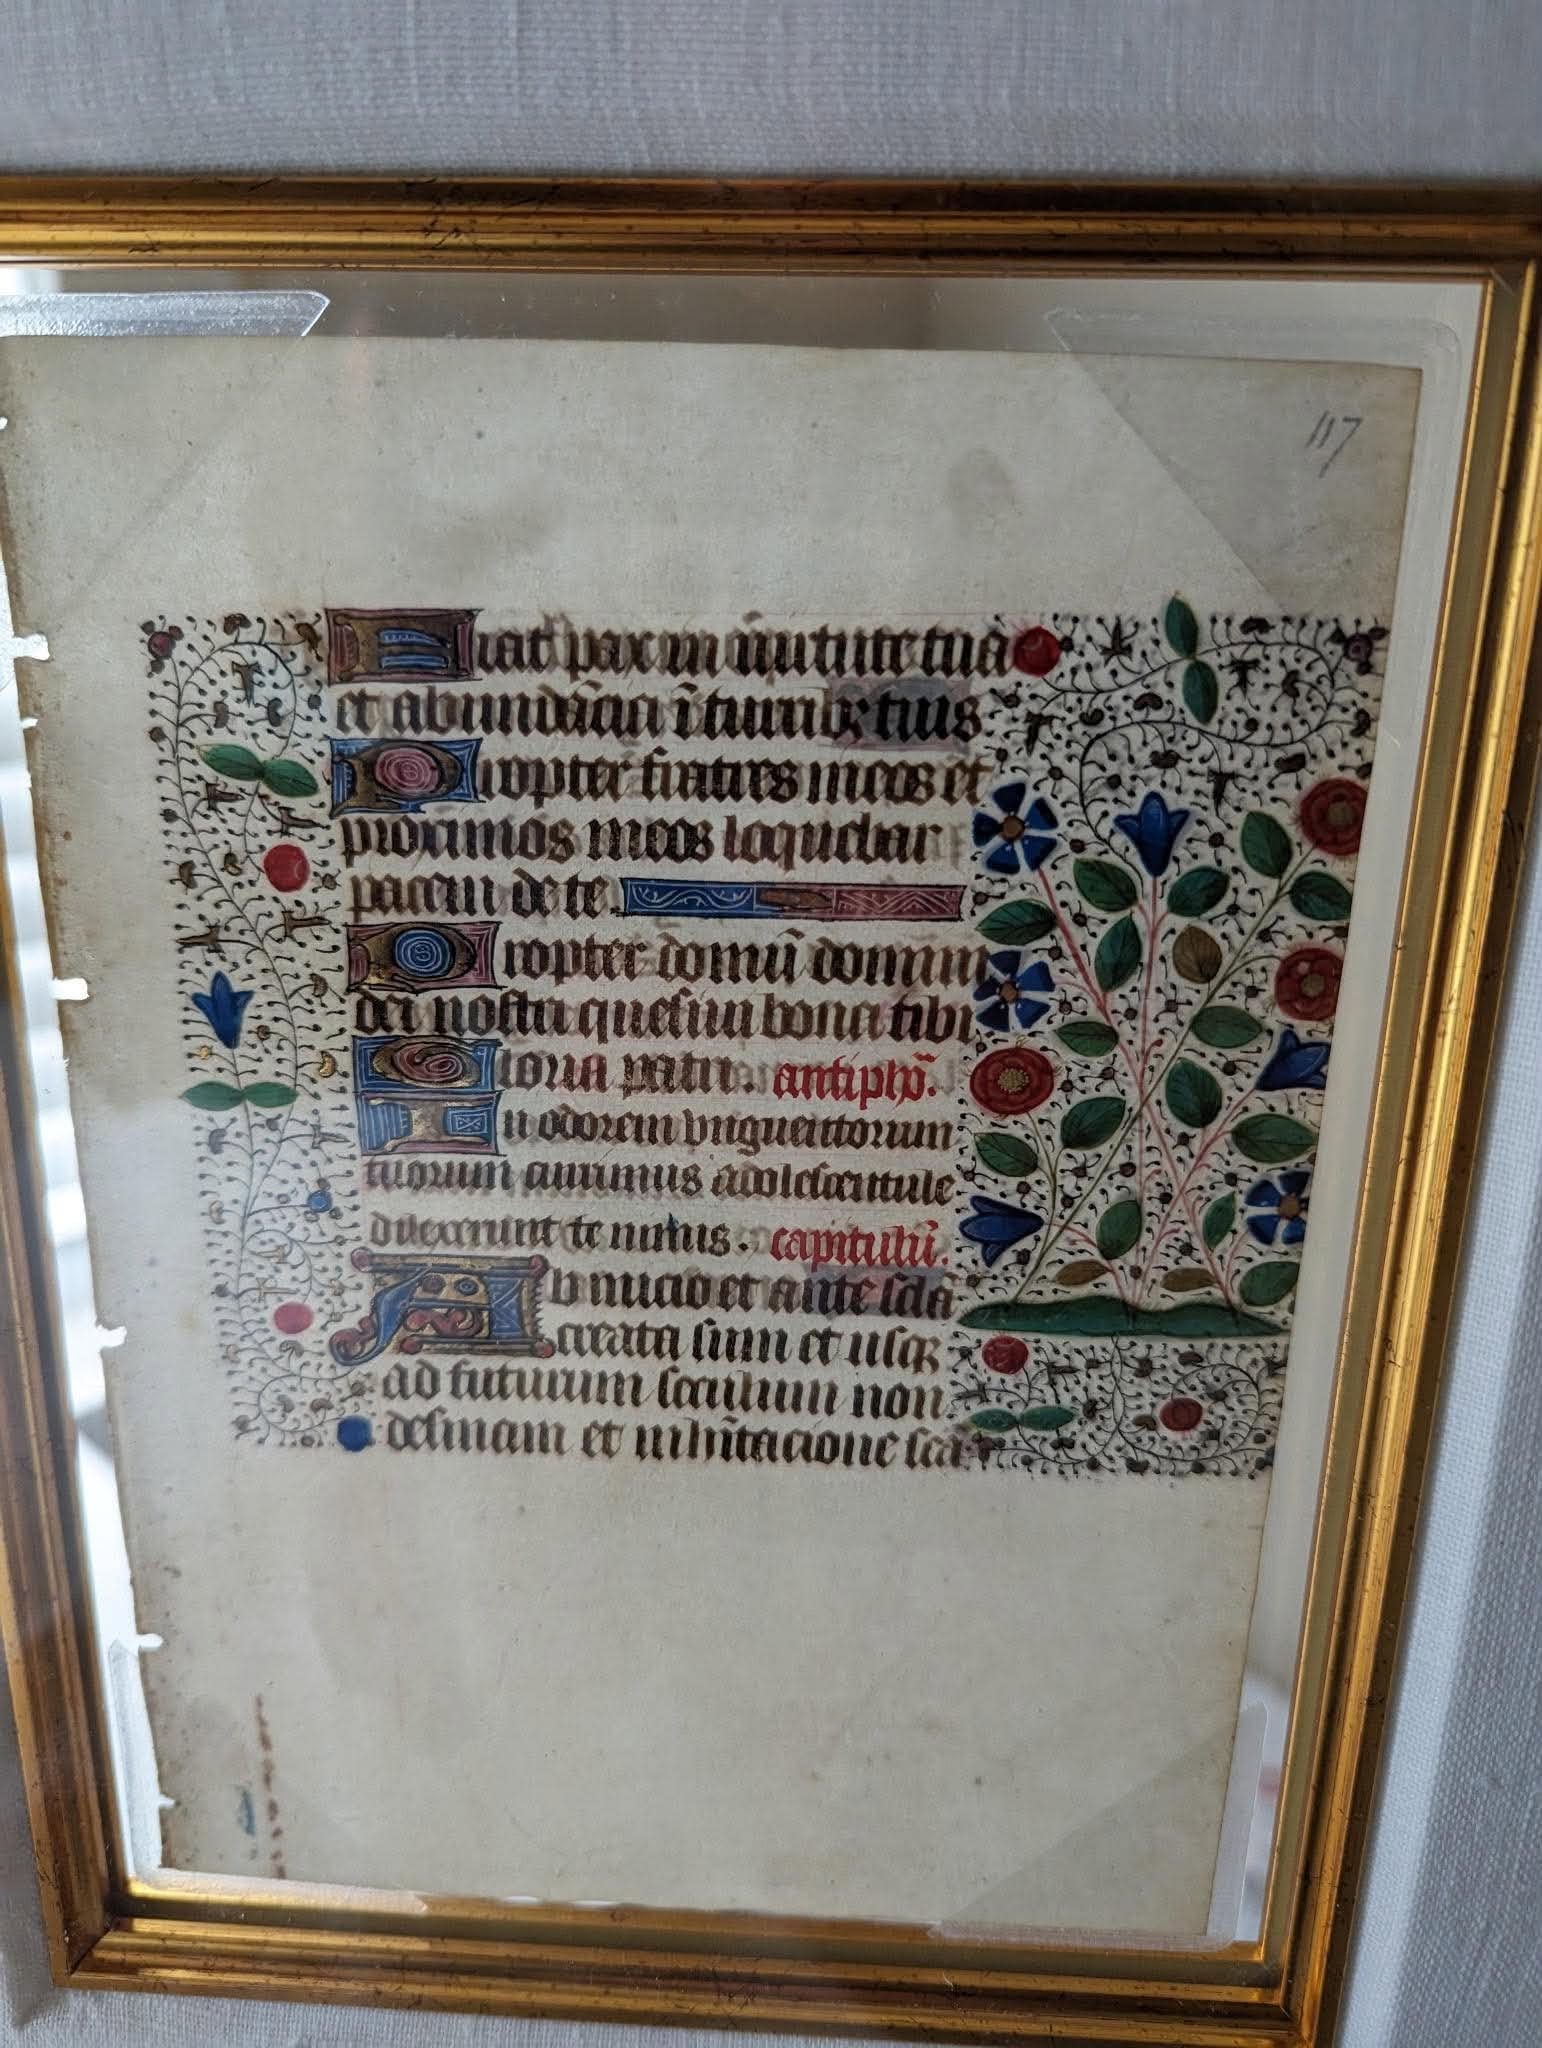 117
Fiat pax in uirtute tua
et abundãcia ĩ turribꝫ tuis.
Propter fratres meos et
proximos meos loquebar
pacem de te.
Propter domũ domini
dei nostri quesiui bona tibi
Gloria patri. antiphõ.
In odorem vnguentorum
tuorum currimus adolescentule
dilexerunt te nimis. capitulũ.
Ab inicio et ante sclã
creata sum et usqꝫ
ad futurum seculum non
desinam et in hĩtacione sca